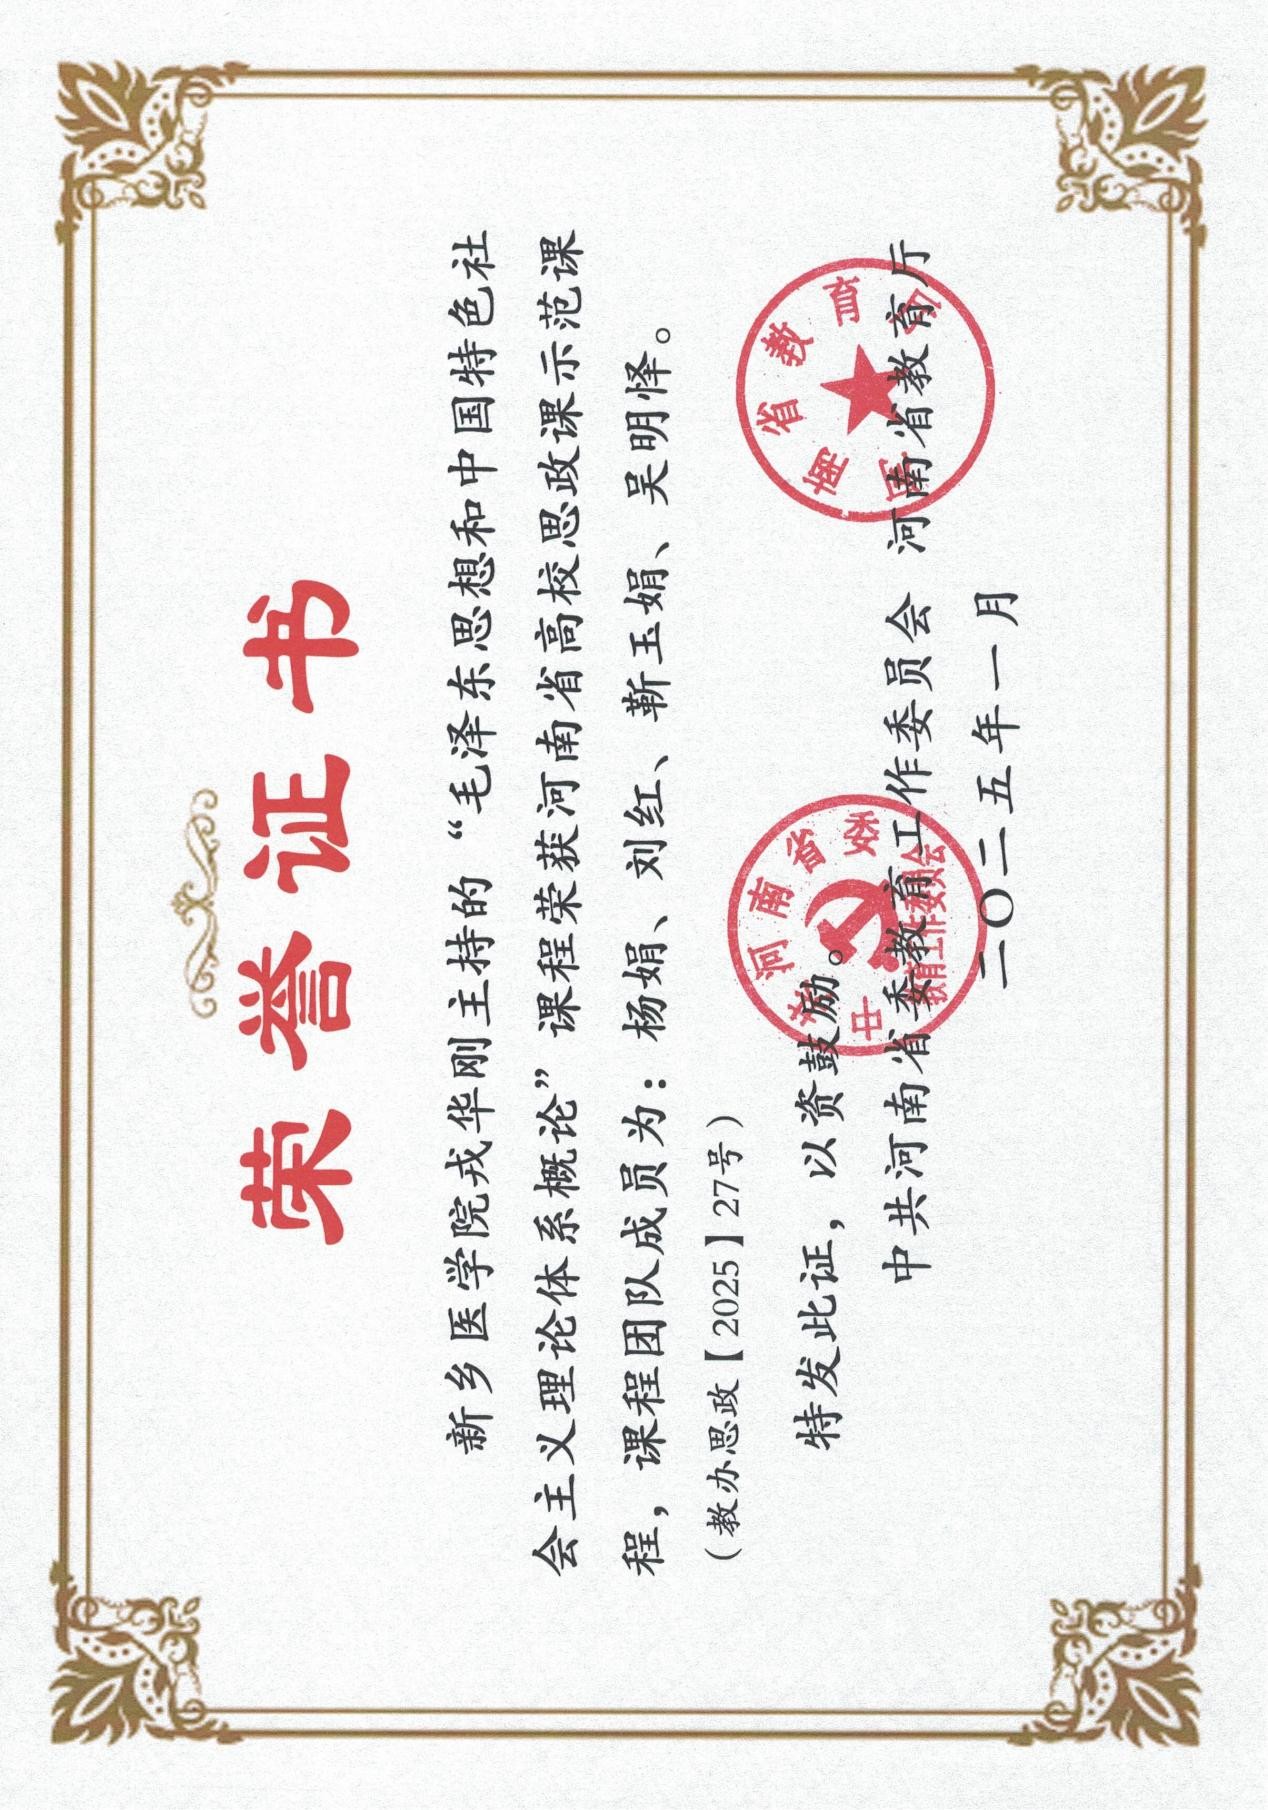 荣誉证书
新乡医学院戎华刚主持的“毛泽东思想和中国特色社
会主义理论体系概论”课程荣获河南省高校思政课示范课
程，课程团队成员为：杨娟、刘红、靳玉娟、吴明怿。
（教办思政【2025】27号）
特发此证，以资鼓励。
中共河南省委教育工作委员会 河南省教育厅
二〇二五年一月
中共河南省委
教育工作委员会
河南省教育厅